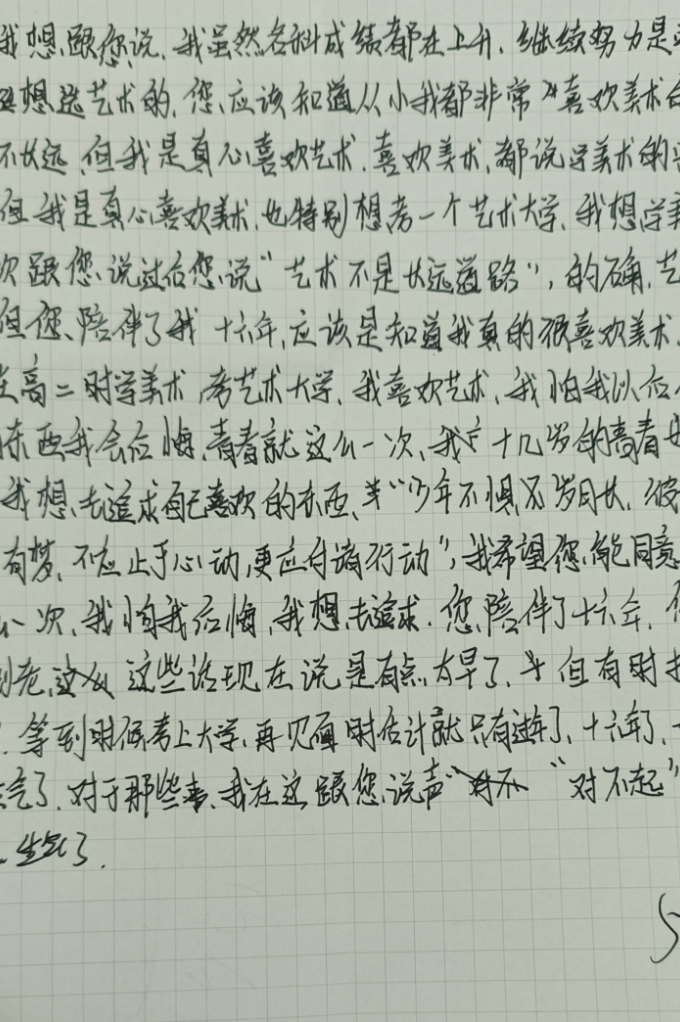 我想跟您说，我虽然各科成绩都在上升，继续努力是
想选艺术的，您应该知道从小我都非常喜欢美术
不长远，但我是真心喜欢艺术，喜欢美术，都说学美术的
但我是真心喜欢美术，也特别想考一个艺术大学，我想学
次跟您说过后您说“艺术不是长远道路”，的确，艺
但您陪伴了我十六年，应该是知道我真的很喜欢美术，
在高二时学美术，考艺术大学，我喜欢艺术，我怕我以后
东西我会后悔，青春就这么一次，我十几岁的青春
我想去追求自己喜欢的东西，“少年不惧岁月长，彼
有梦，不应止于心动，更应付诸行动”，我希望您能同意
一次，我怕我后悔，我想去追求。您陪伴了十六年，
到老，这么这些话现在说是有点太早了，但有时
，等到时候考上大学，再见面时估计就只有过年了，十六年了，
气了，对于那些事，我在这跟您说声“对不起”
生气了．